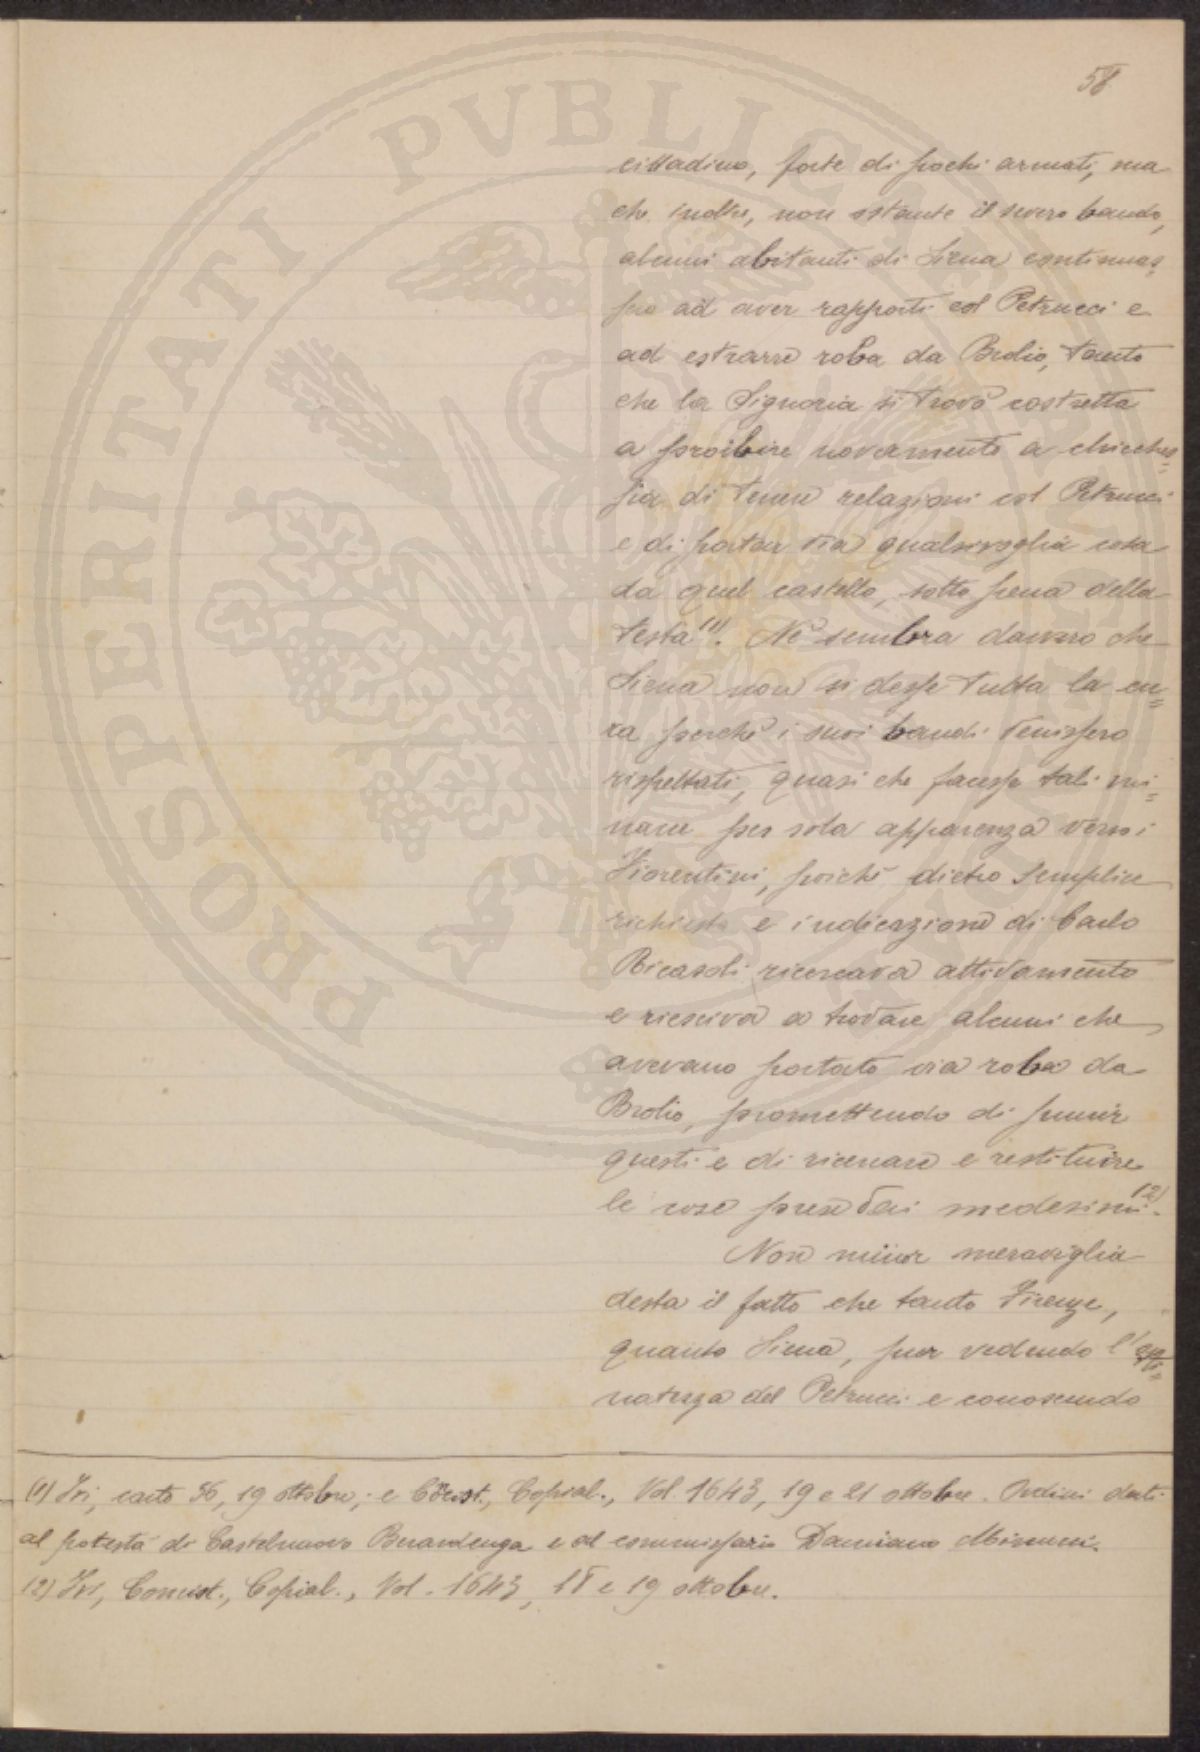 58
cittadino, forte di pochi armati, ma
che inoltre, non ostante il severo bando,
alcuni abitanti di Siena continuas=
sero ad aver rapporti col Petrucci e
ad estrarre roba da Brolio, tanto
che la Signoria si trovò costretta
a proibire novamente a chicches=
sia di tenere relazioni col Petrucci
e di portar via qualsivoglia cosa
da quel castello, sotto pena della
testa (1). Nè sembra davvero che
Siena non si desse tutta la cu=
ra perchè i suoi bandi venissero
rispettati, quasi che facesse tali mi=
nacce per sola apparenza verso i
Fiorentini, poichè dietro semplice
richiesta e indicazione di Carlo
Ricasoli ricercava attivamente
e riesciva a trovare alcuni che
avevano portato via roba da
Brolio, promettendo di punir
questi e di ricercare e restituire
le cose prese dai medesimi (2).
Non minor meraviglia
desta il fatto che tanto Firenze,
quanto Siena, pur vedendo l'osti=
natezza del Petrucci e conoscendo
(1) Ivi, carte 56, 19 ottobre; e Concist., Copial., Vol. 1643, 19 e 21 ottobre. Ordini dati
al potestà di Castelnuovo Berardenga e al commissario Damiano
(2) Ivi, Concist., Copial., Vol. 1643, 18 e 19 ottobre.
PROSPERITATI PVBLICAE